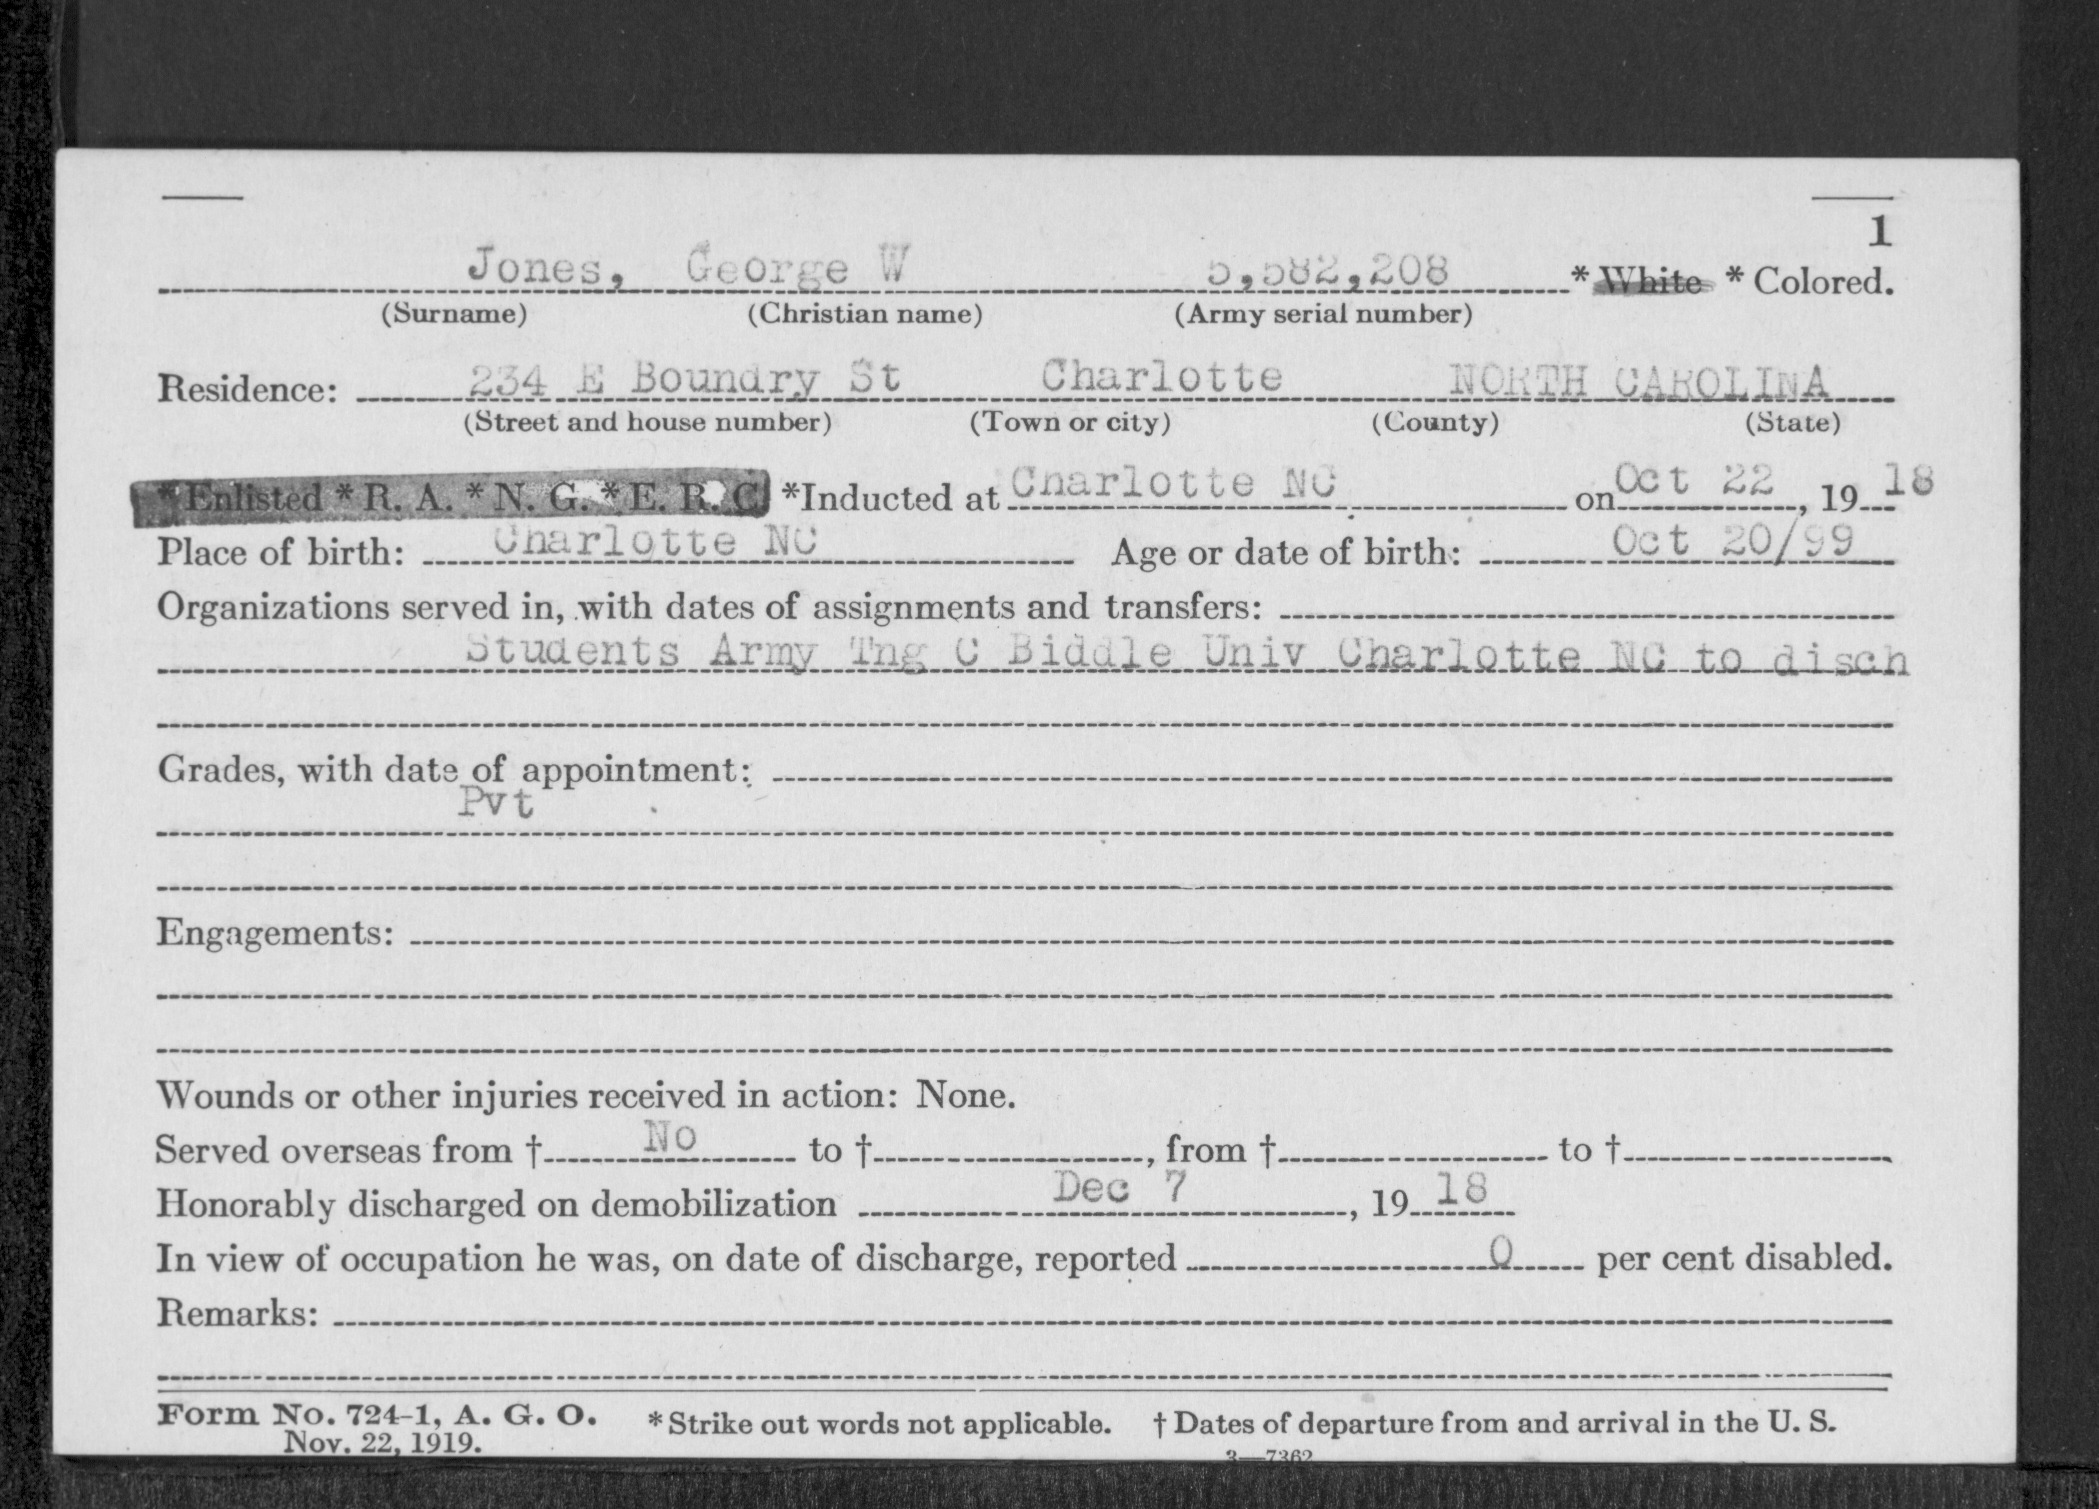 1
Jones, George W 5,582,208 * White * Colored.
(Surname) (Christian name) (Army serial number)
Residence: 234 E Boundry St Charlotte NORTH CAROLINA
(Street and house number) (Town or city) (County) (State)
*Enlisted *R. A. *N. G. *E. R. C. *Inducted at Charlotte NC on Oct 22, 1918
Place of birth: Charlotte NC Age or date of birth: Oct 20/99
Organizations served in, with dates of assignments and transfers:
Students Army Tng C Biddle Univ Charlotte NC to disch
Grades, with date of appointment:
Pvt
Engagements:
Wounds or other injuries received in action: None.
Served overseas from † No to †, from † to †
Honorably discharged on demobilization Dec 7, 1918
In view of occupation he was, on date of discharge, reported 0 per cent disabled.
Remarks:
Form No. 724-1, A. G. O. *Strike out words not applicable. † Dates of departure from and arrival in the U. S.
Nov. 22, 1919.
3—7362